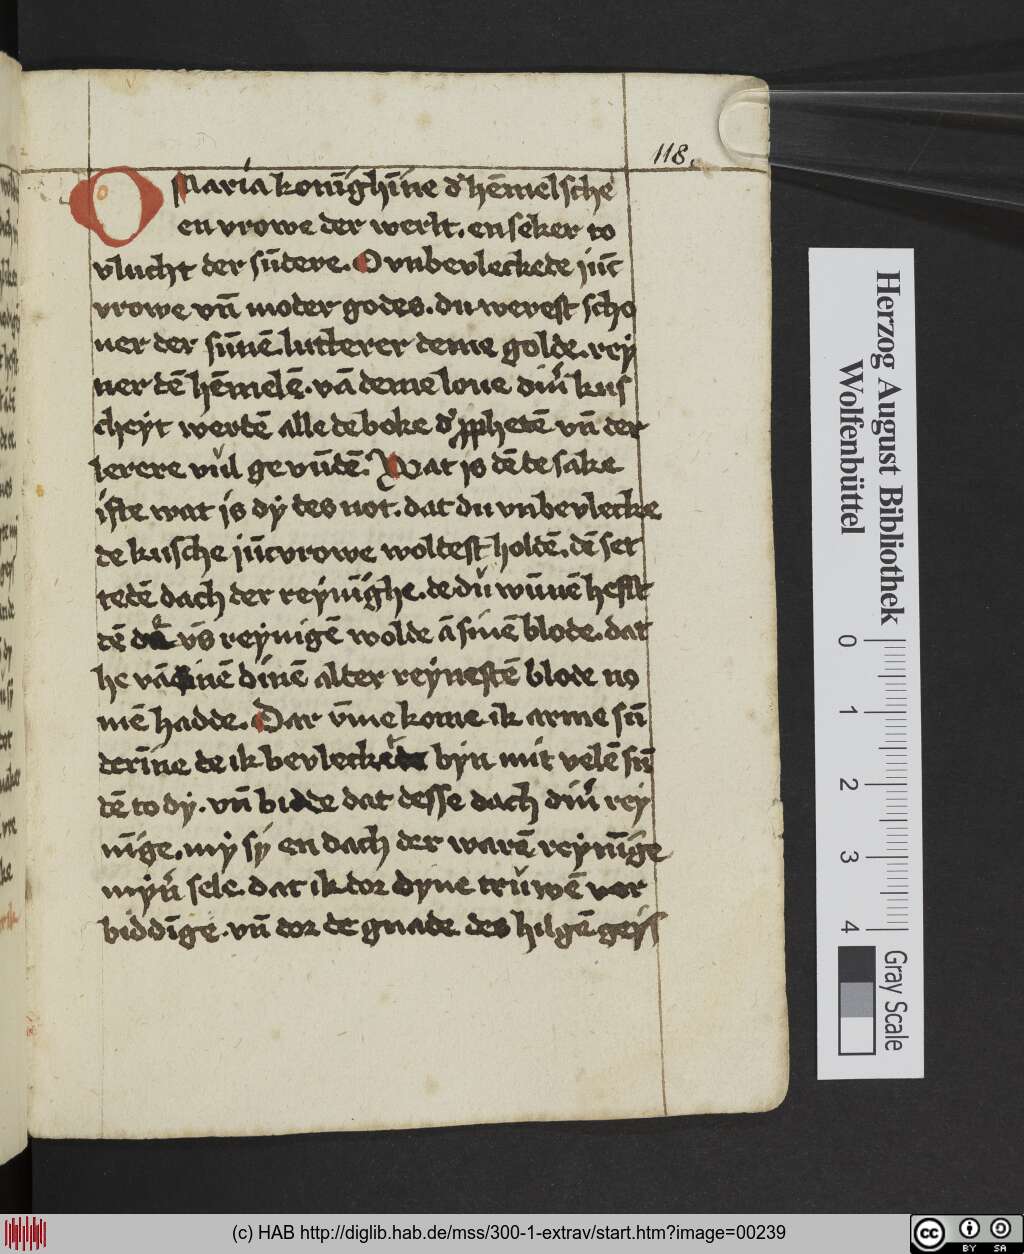 118.
O Maria konīghīne d' hēmelsche
en vrowe der werlt. en seker to
vlucht der sūdere. O vnbevleckede jūc
vrowe vn̄ moder godes. du werest scho
ner der sūnē. lutterer deme golde. rey
ner dē hēmelē. vā deme loue diner kus
cheyt werdē alle de boke d' pphetē vn̄ der
lerere vul gevūdē. Wat is dē de sake
ifte wat is dy des not. dat du vnbevlecke
de kusche jūcvrowe woldest holdē. dē set
tedē dach der reynīghe. de du wūnē hefst
dē de vs reynigē wolde ā sinē blode. dat
he vā dinē alter reynestē blode no
mē hadde. Dar vme kome ik arme sū
derīne de ik bevlecket byn mit velē sū
dē to dy. vn̄ bidde dat desse dach diner rey
nīge. my sy en dach der warē reynīge
myner sele. dat ik dor dyne truwē vor
biddīge. vn̄ dor de gnade des hilgē geys
Herzog August Bibliothek
Wolfenbüttel
0 1 2 3 4
Gray Scale
(c) HAB http://diglib.hab.de/mss/300-1-extrav/start.htm?image=00239
cc BY SA